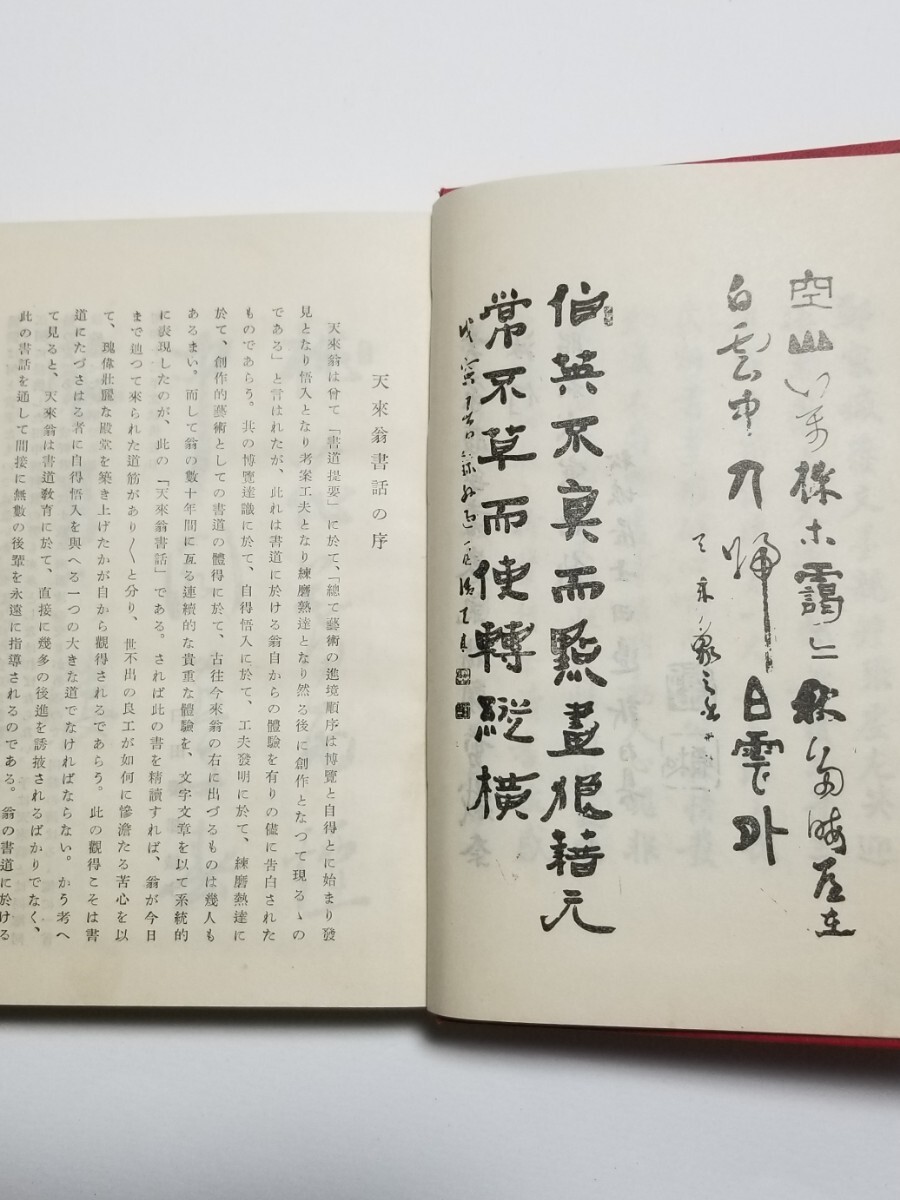 伯英不真而點畫狼藉元
常不草而使轉縱橫
天來翁書話の序
天來翁は曾て「書道提要」に於て、「總て藝術の進境順序は博覽と自得とに始まり發
見となり悟入となり考案工夫となり練磨熟達となり然る後に創作となつて現るゝの
である」と言はれたが、此れは書道に於ける翁自からの體驗を有りの儘に告白された
ものであらう。其の博覽達識に於て、自得悟入に於て、工夫發明に於て、練磨熟達に
於て、創作的藝術としての書道の體得に於て、古往今來翁の右に出づるものは幾人も
あるまい。而して翁の數十年間に亙る連續的な貴重な體驗を、文字文章を以て系統的
に表現したのが、此の「天來翁書話」である。されば此の書を精讀すれば、翁が今日
まで辿つて來られた道筋があり〳〵と分り、世不出の良工が如何に慘澹たる苦心を以
て、瑰偉壯麗な殿堂を築き上げたかが自から觀得されるであらう。此の觀得こそは書
道にたづさはる者に自得悟入を與へる一つの大きな道でなければならない。かう考へ
て見ると、天來翁は書道敎育に於て、直接に幾多の後進を誘掖されるばかりでなく、
此の書話を通して間接に無數の後輩を永遠に指導されるのである。翁の書道に於ける